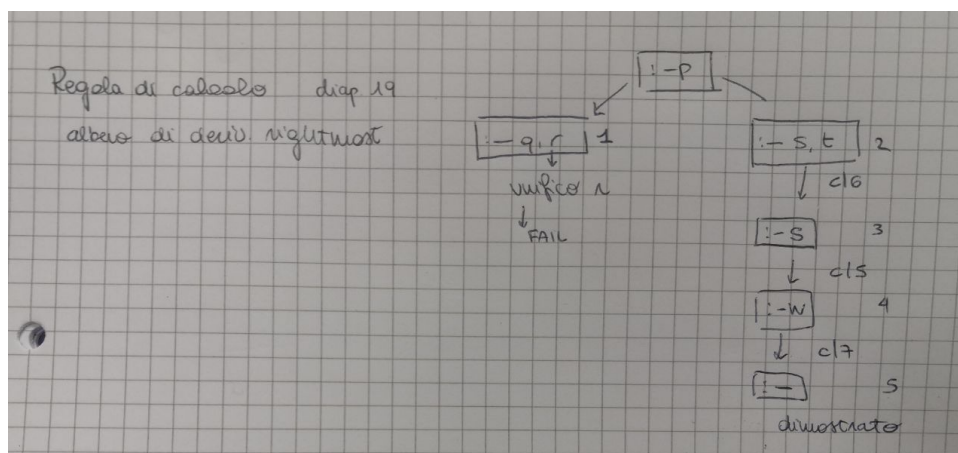 Regola di calcolo diap 19
albero di deriv. rightmost
:-p
:- q, r 1
unifico r
FAIL
:- s, t 2
cl6
:- s 3
cl5
:- w 4
cl7
:- 5
dimostrato